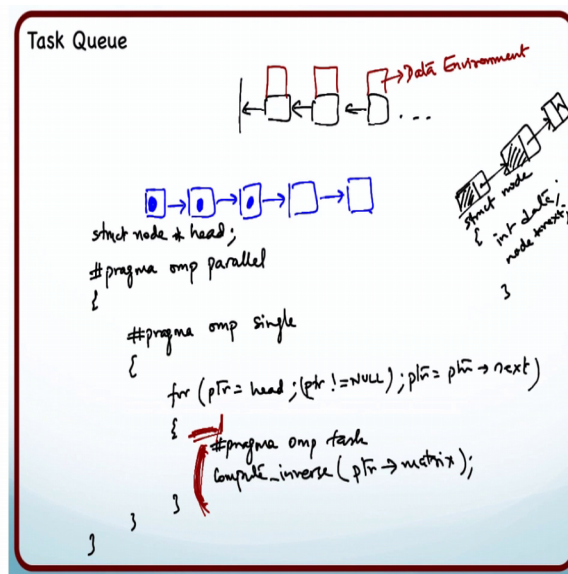 Task Queue
→Data Environment
...
struct node
{ int data;
node *next;
}
struct node * head;
#pragma omp parallel
{
#pragma omp single
{
for (ptr = head ; (ptr != NULL) ; ptr = ptr → next)
{
#pragma omp task
compute_inverse (ptr → matrix);
}
}
}